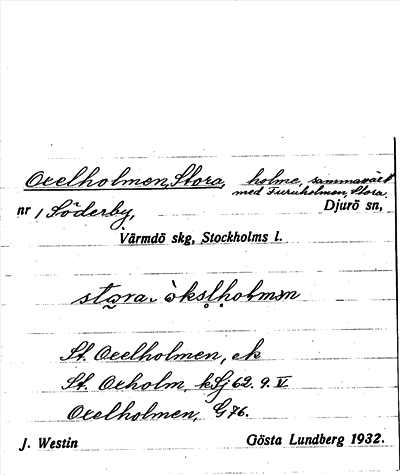 Oxelholmen, Stora, holme, sammanväxt
med Furuholmen, Stora.
nr 1 Söderby, Djurö sn,
Värmdö skg, Stockholms l.
St. Oxelholmen, ek
St. Oxholm, kSj 62. 9. V.
Oxelholmen, G 76.
J. Westin Gösta Lundberg 1932.